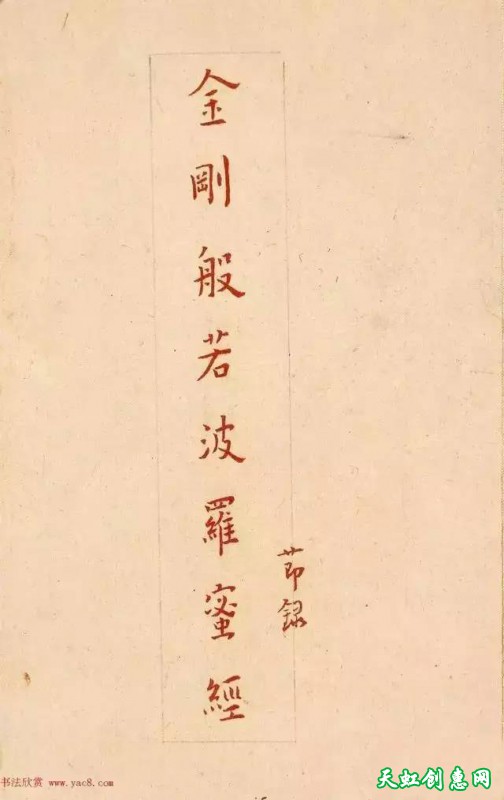 金剛般若波羅蜜經
節録
书法欣赏 www.yac8.com
天虹创惠网